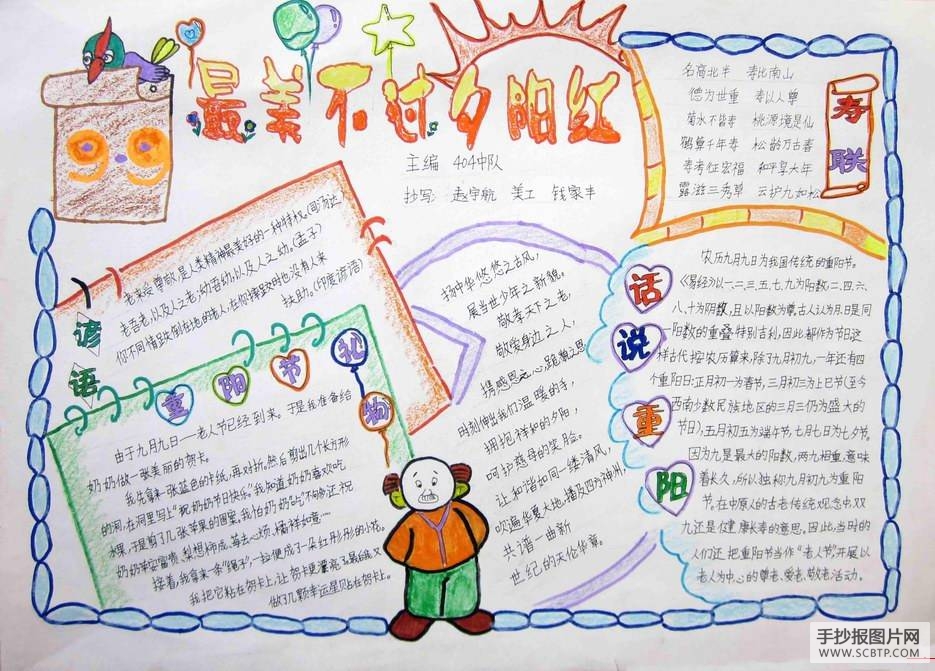 最美不过夕阳红
主编 404中队
抄写 赵宇航 美工 钱家丰
99
寿联
名高北斗 寿比南山
德为世重 寿以人尊
菊水不皆寿 桃源境是仙
鹤算千年寿 松龄万古春
寿考征宏福 和平享大年
露滋三秀草 云护九如松
谚语
老来受尊敬,是人类精神最美好的一种特权。(司汤达)
老吾老,以及人之老;幼吾幼,以及人之幼。(孟子)
你不同情跌倒在地的老人,在你摔跤时也没有人来
扶助。(印度谚语)
重阳节礼物
由于九月九日——老人节已经到来,于是我准备给
奶奶做一张美丽的贺卡。
我先拿来一张蓝色的卡纸,再对折,然后剪出几个长方形
的洞,在洞里写上“祝奶奶节日快乐”。我知道奶奶喜欢吃
水果,于是剪了几张苹果的图案,我怕奶奶吃“不够”,还祝
奶奶苹安富贵、梨想
橘祥如意……
接着,我拿来一条“绳子”,一拉便成了一朵红彤彤的小花。
我把它粘在贺卡上,让贺卡更漂亮了。最后,又
做了几颗幸运星贴在贺卡上。
扬中华悠悠之古风,
展当世少年之新貌。
敬孝天下之老,
敬爱身边之人,
携感恩之心
时刻伸出我们温暖的手,
拥抱祥和的夕阳,
呵护慈母的笑脸。
让和谐如同一缕清风,
吹遍华夏大地,播及四方神州,
共谱一曲新
世纪的天伦华章。
话说重阳
农历九月九日为我国传统的重阳节。
《易经》以一、二、三、五、七、九为阳数,二、四、六、
八、十为阴数,且以阳数为尊。古人认为月、日是同
一阳数的重叠特别吉利,因此都作为节日。这
样古代按农历算来,除了九月初九,一年还有四
个重阳日:正月初一为春节,三月初三为上巳节(至今
西南少数民族地区的三月三仍为盛大的
节日),五月初五为端午节,七月七日为七夕节。
因为九是最大的阳数,两九相重,意味
着长久,所以独称九月初九为重阳
节。在中原人的古老传统观念中,双
九还是健康长寿的意思。因此,当时的
人们还把重阳节当作“老人节”,开展以
老人为中心的尊老、爱老、敬老活动。
手抄报图片网
WWW.SCBTP.COM